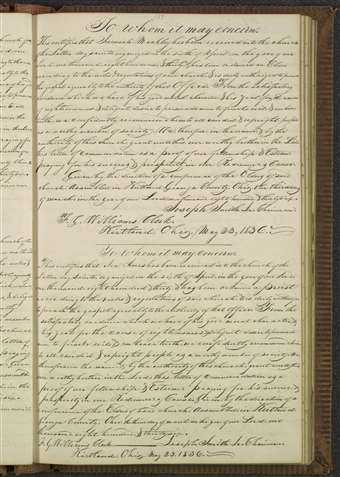 To whom it may concern.
This certifies that has been received into the church
of the Latter day saints organized on the sixth of April in the year of our
Lord one thousand eight hundred & thirty & has been ordained an Elder
according to the rules & regulations of said church & is duly authorized to preach
the gospel agreeably to the authority of that office From the satisfactory
evidence which we have of his good moral character & his zeal for the cause
of righteousness & diligent desire to persuade men to forsake evil & embrace
truth we confidently recommend him to all candid & upright people
as a worthy member of society. We therefore in the name & by the
authority of this church grant unto this our worthy brother in the Lord
this letter of commendation as a proof of our fellowship & Esteem
praying for his success & prosperity in our Redeemer's Cause
Given by the direction of a conference of the Elders of said
church assembled in Kirtland Geauga County Ohio the third day
of March in the year of our Lord one thousand eight hundred & thirty six
Joseph Smith Jr. Chairman
F. G. Williams Clerk.
Kirtland Ohio, May 23, 1836.
To whom it may concern
This certifies that Ira Ames has been received into the church of the
Latter day saints organized on the sixth of April in the year of our Lord
one thousand eight hundred & thirty & has been ordained a priest
according to the rules & regulations of said church & is duly authorized
to preach the gospel agreeably to the authority of that office From the
satisfactory evidence which we have of his good moral character &
his zeal for the cause of righteousness & diligent desire to persuade
men to forsake evil & embrace truth we confidently recommend him
to all candid & upright people as a worthy member of society We
therefore in the name & by the authority of this church grant unto this
our worthy brother in the Lord this letter of Commendation as a
proof of our fellowship & Esteem praying for his success &
prosperity in our Redeemer's Cause Given by the direction of a
conference of the Elders of said church assembled in Kirtland
Geauga County Ohio the third day of March in the year of our Lord one
thousand eight hundred & thirty six
F. G. Williams Clerk Joseph Smith Jr. Chairman
Kirtland Ohio, May 23, 1836.